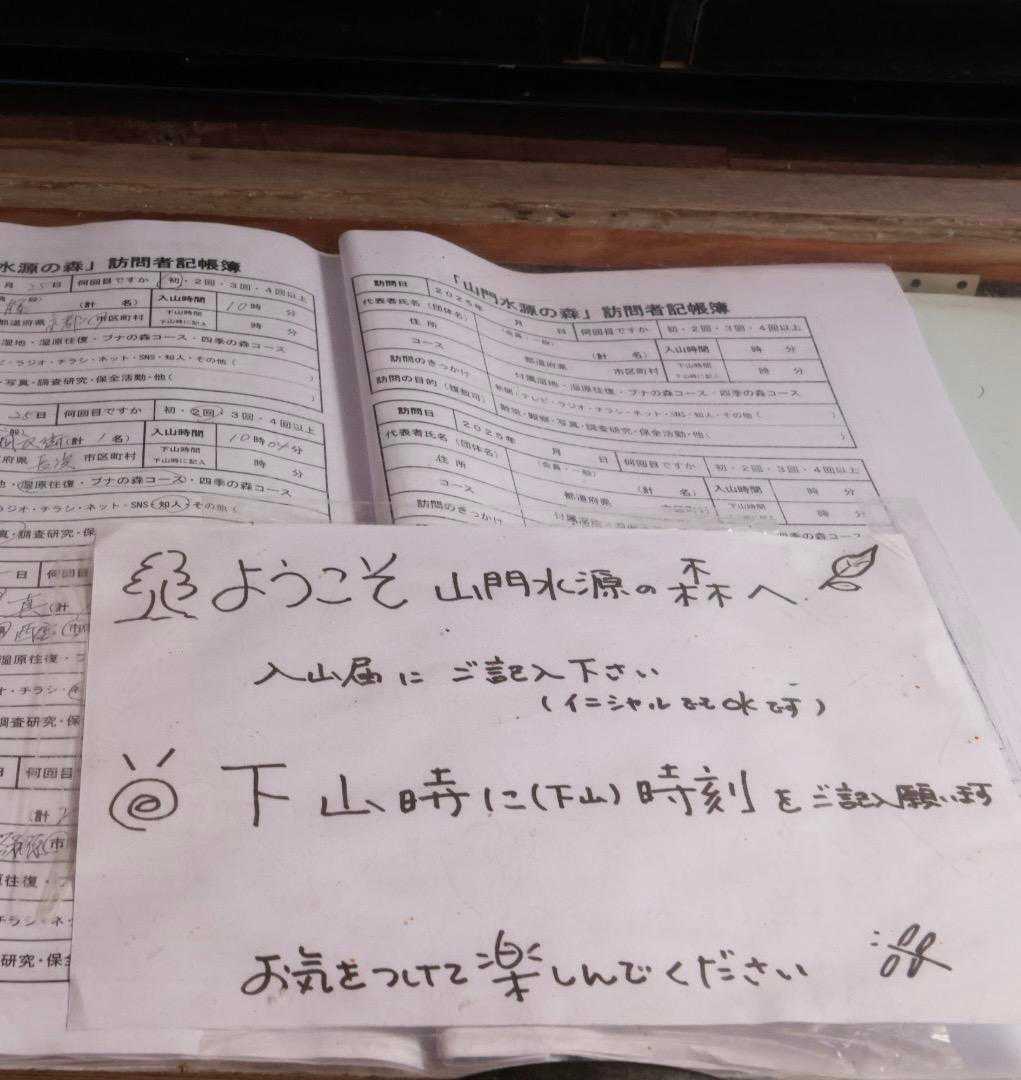 水源の森」訪問者記帳簿
月 25日 何回目ですか 初・2回・3回・4回以上
(計 名) 入山時間 10時 分
都道府県 京都 市区町村 下山時間 下山時に記入 時 分
湿地・湿原往復・ブナの森コース・四季の森コース
・ラジオ・チラシ・ネット・SNS・知人・その他(
・写真・調査研究・保全活動・他( )
25日 何回目ですか 初・2回・3回・4回以上
(計 1名) 入山時間 10時04分
府県 長浜 市区町村 下山時間 下山時に記入 時 分
湿原往復・ブナの森コース・四季の森コース
ラジオ・チラシ・ネット・SNS・知人・その他(
調査研究・保
日 何回目
真 (計
湿原往復・
オ・チラシ・
調査研究・保
何回目
(計
市
往復・
チラシ・ネ
研究・保全
「山門水源の森」訪問者記帳簿
訪問日 2025年 月 日 何回目ですか 初・2回・3回・4回以上
代表者氏名(団体名) (会員・一般) (計 名) 入山時間 時 分
住所 都道府県 市区町村 下山時間 下山時に記入 時 分
コース 付属湿地・湿原往復・ブナの森コース・四季の森コース
訪問のきっかけ 新聞・テレビ・ラジオ・チラシ・ネット・SNS・知人・その他( )
訪問の目的(複数可) 散策・観察・写真・調査研究・保全活動・他( )
訪問日 2025年 月 日 何回目ですか 初・2回・3回・4回以上
代表者氏名(団体名) (会員・一般) (計 名) 入山時間 時 分
住所 都道府県 市区町村 下山時間 下山時に記入 時 分
コース 付属湿地・ 四季の森コース
訪問のきっかけ
ようこそ 山門水源の森へ
入山届に ご記入下さい
(イニシャルでもOKです)
下山時に(下山)時刻をご記入願います
お気をつけて楽しんでください